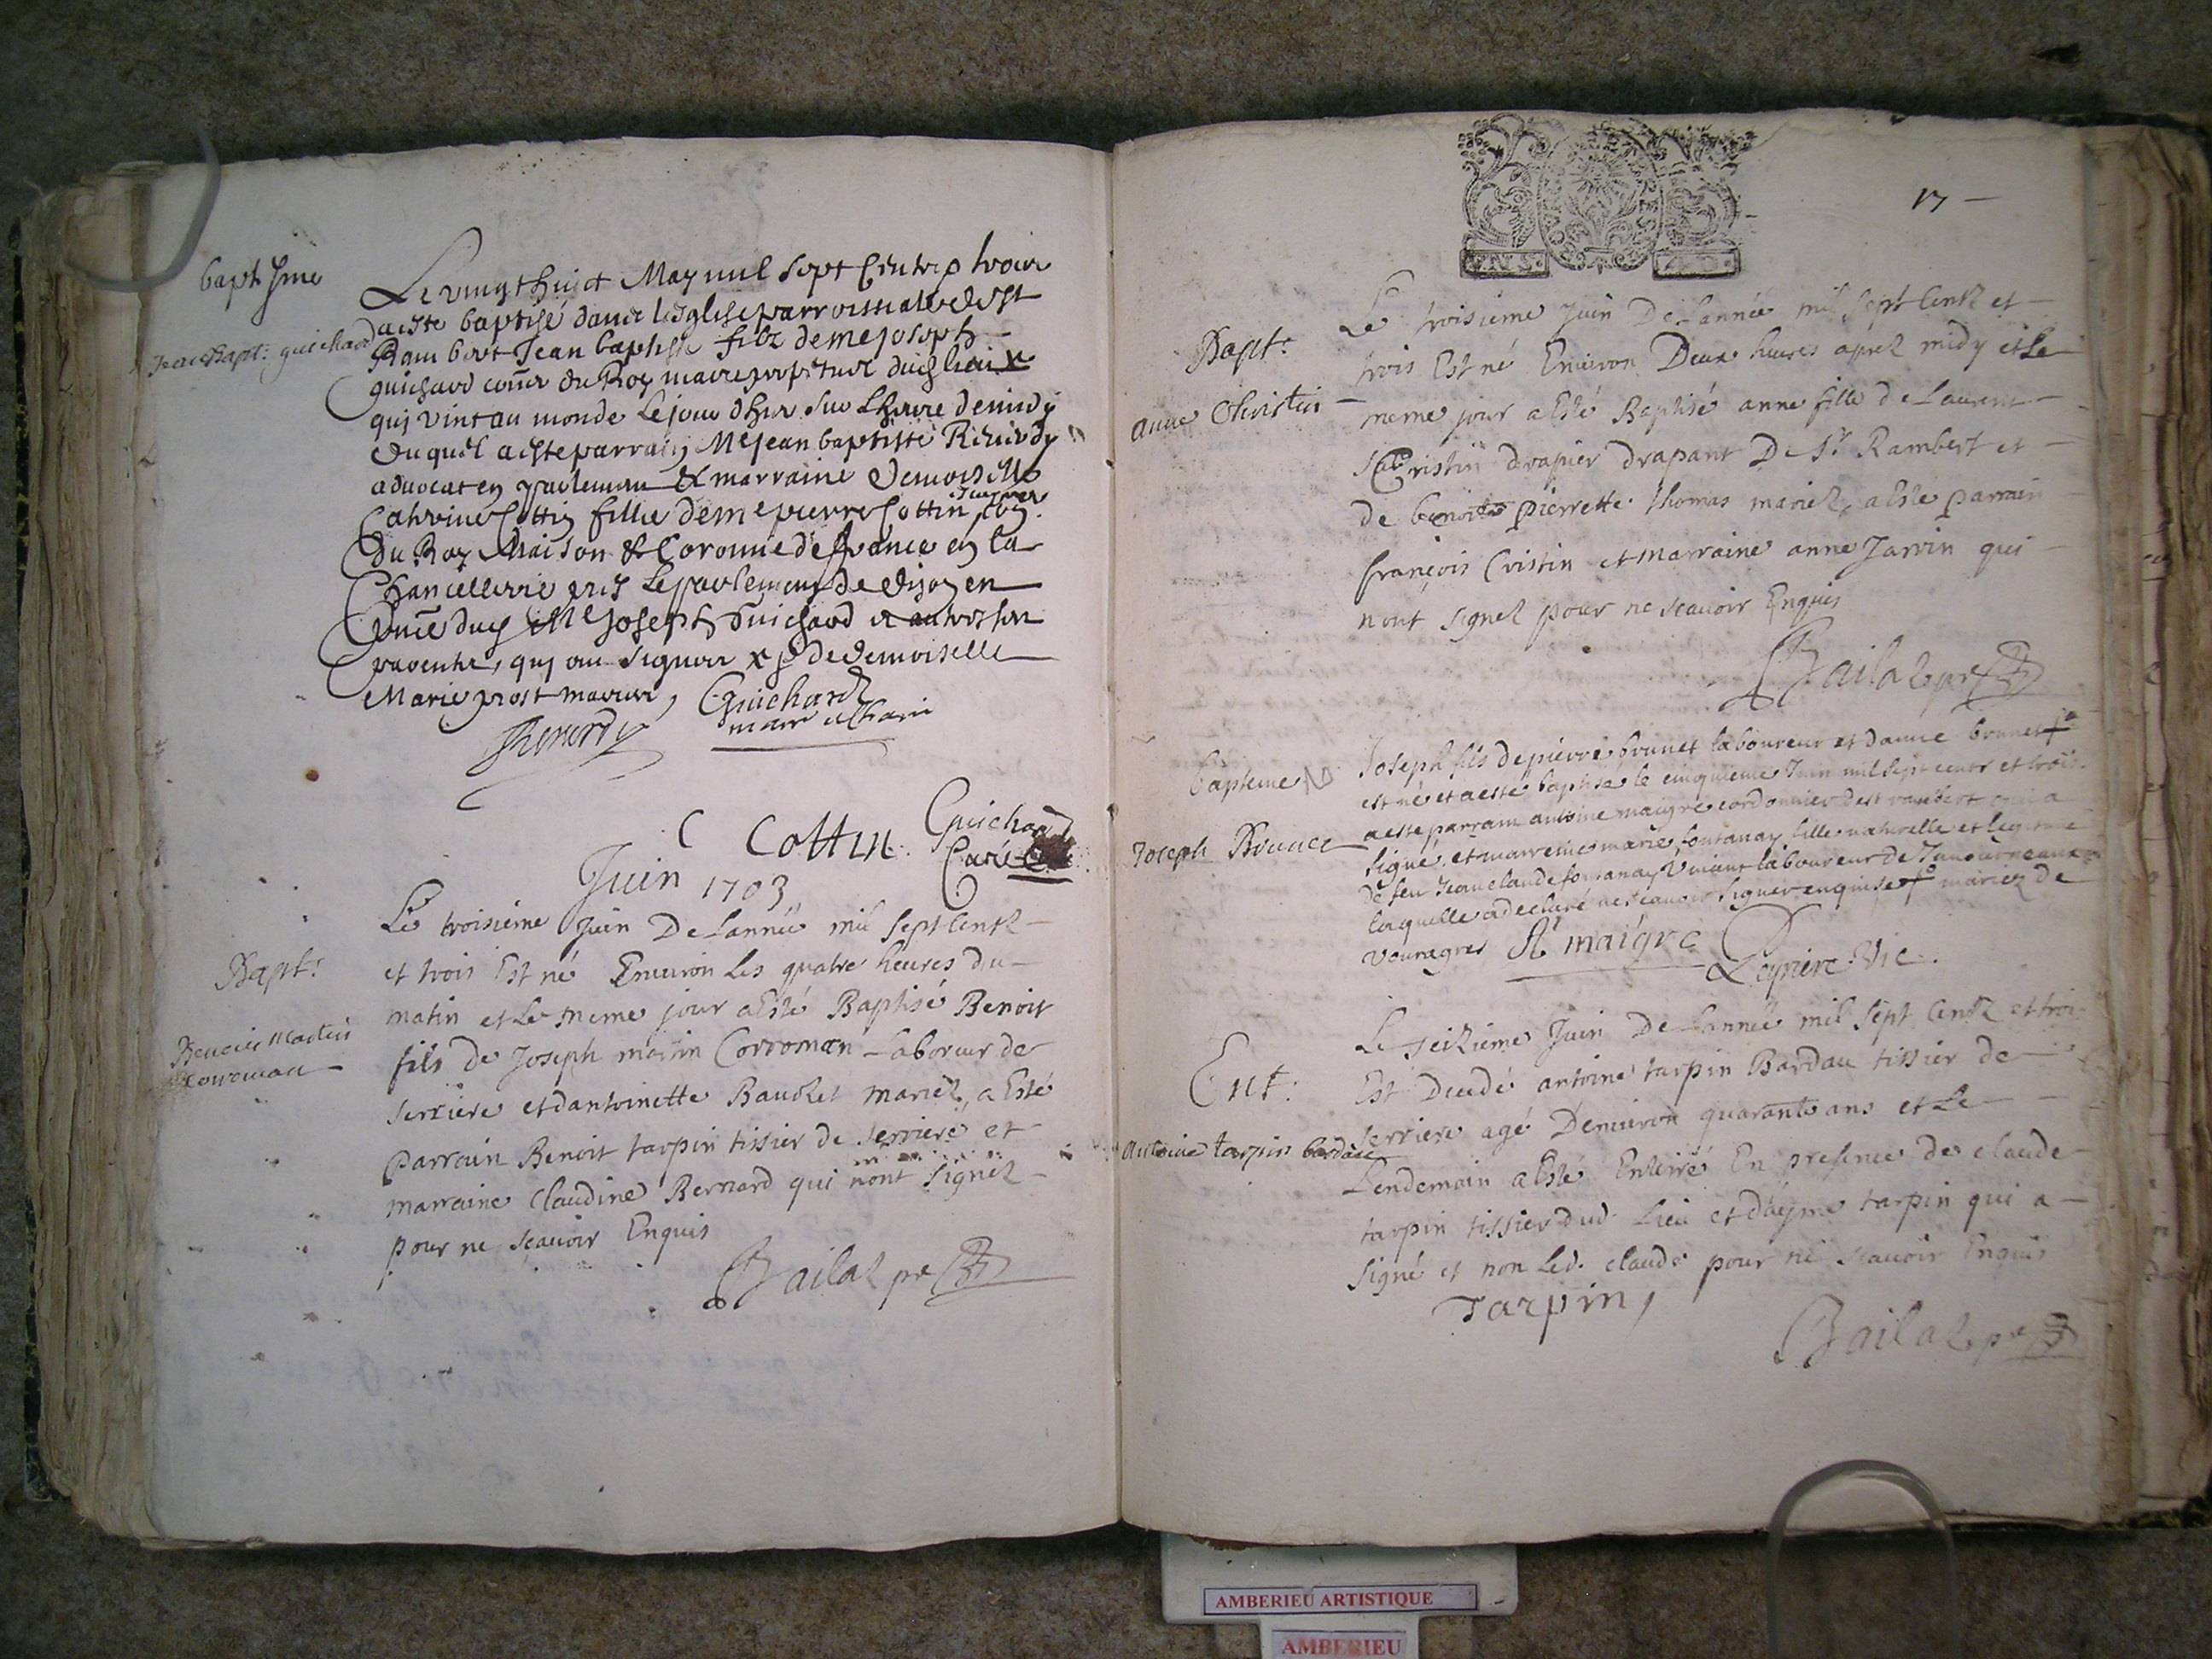 baptisme
Jean Bapt: guichard
Le vingt huict May mil sept Cents trois
a esté baptisé dans l'esglise parroissialle de st
Rambert Jean baptiste filz de me joseph
guichard du Roy maire
quj vint au monde le jour d'hier sur l'heure de midy
duquel a esté parrain Me jean baptiste
advocat en parlement & marraine demoiselle
Cottin fillie de me pierre Cottin
du Roy Maison & Coronne de france en la
Chancellerie pres le parlement de dijon en
Joseph Guichard et
quj ont signer de demoiselle
Marie prost
Guichard
maire
C Cottin
Guichard
Curé
Juin 1703
Bapt:
Benoist Martin
Corroman
Le troisiéme Juin De Lannée mil sept Centz
et trois Est né Environ Les quatre heures du
matin et Le meme jour a Esté Baptisé Benoit
fils de Joseph martin Corroman Laboreur de
serriere et dantoinette mariéz, a Esté
parrain Benoit tarpin tissier de serriere et
marraine Claudine Bernard qui nont signéz
pour ne sçavoir Enquis
Bailat pre
17
Bapt:
anne Christin
Le troisieme Juin De Lannée mil sept Centz et
trois Est né Environ Deux heures aprez midy et Le
meme jour a Esté Baptisé anne fille de Laurent
Cristin drapier drapant De St Rambert et
de benoite pierrette thomas mariez, a Esté parrain
françois Cristin et marraine anne Jarvin qui
nont signez pour ne scavoir Enquis
Bailat pre
bapteme
Joseph Brunet
Joseph fils de pierre brunet laboureur et danne brunet
est né et a esté baptisé le cinquieme Juin mil sept cents et trois
a esté parrain antoine maigre cordonnier de st rambert qui a
signé, et marreine marie fontanay fille naturelle et legitime
de feu Jean claude fontanay vivant laboureur de
laquelle a declaré ne scavoir signer enquise mariez de
A maigre
Vic.
Ent:
antoine tarpin bardau
Le seiziéme Juin De Lannée mil sept Centz et trois
Est Decedé antoine tarpin Bardau tissier de
serriere agé Denviron quarante ans et Le
Lendemain a Esté Enterré En presence de claude
tarpin tissier dud. Lieu et d'ayme tarpin qui a
signé et non Led. claude pour ne scavoir Enquis
Tarpin,
Bailat pre
AMBERIEU ARTISTIQUE
AMBERIEU